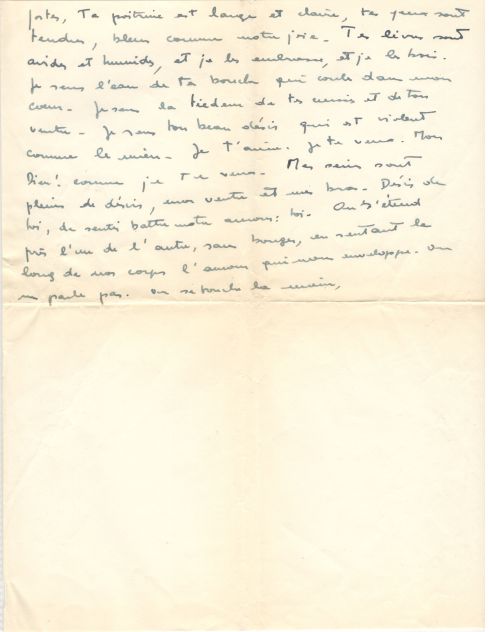 fortes, Ta poitrine est large et claire, tes yeux sont
tendres, bleus comme notre joie. Tes lèvres sont
avides et humides, et je les embrasse, et je les bois.
Je sens l'eau de ta bouche qui coule dans mon
cœur. Je sens la tiédeur de tes cuisses et de ton
ventre. Je sens ton beau désir qui est violent
comme le mien. Je t'aime. Je te veux. Mon
Dieu! comme je Te veux. Mes seins sont
pleins de désirs, mon ventre et mes bras. Désir de
toi, de sentir battre notre amour: toi. On s'étend
près l'un de l'autre, sans bouger, en sentant le
long de nos corps l'amour qui nous enveloppe. On
ne parle pas. On se touche la main,